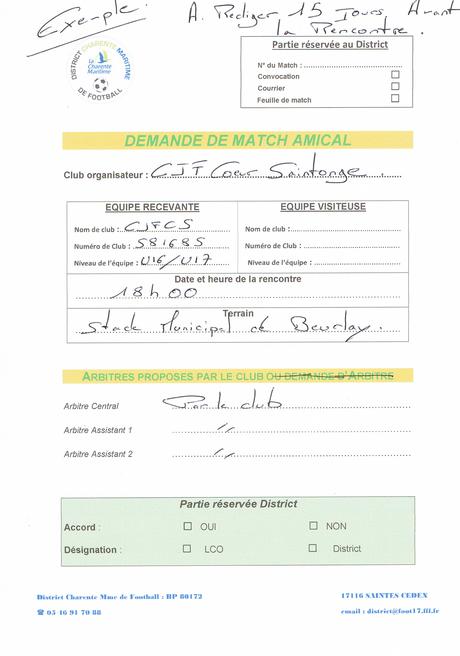 Exemple
A. Rediger 15 Jours Avant
la Rencontre.
DISTRICT CHARENTE MARITIME
La
Charente
Maritime
DE FOOTBALL
Partie réservée au District
N° du Match :
Convocation
Courrier
Feuille de match
DEMANDE DE MATCH AMICAL
Club organisateur : CJF Coeur Saintonge
EQUIPE RECEVANTE
Nom de club : CJFCS
Numéro de Club : 581685
Niveau de l'équipe : U16/U17
EQUIPE VISITEUSE
Nom de club :
Numéro de Club :
Niveau de l'équipe :
Date et heure de la rencontre
18h00
Terrain
Stade Municipal de Beurlay.
ARBITRES PROPOSES PAR LE CLUB OU DEMANDE D'ARBITRE
Arbitre Central Par le club
Arbitre Assistant 1 //
Arbitre Assistant 2 //
Partie réservée District
Accord : OUI NON
Désignation : LCO District
District Charente Mme de Football : BP 80172 17116 SAINTES CEDEX
☎ 05 16 91 70 88 email : district@foot17.fff.fr